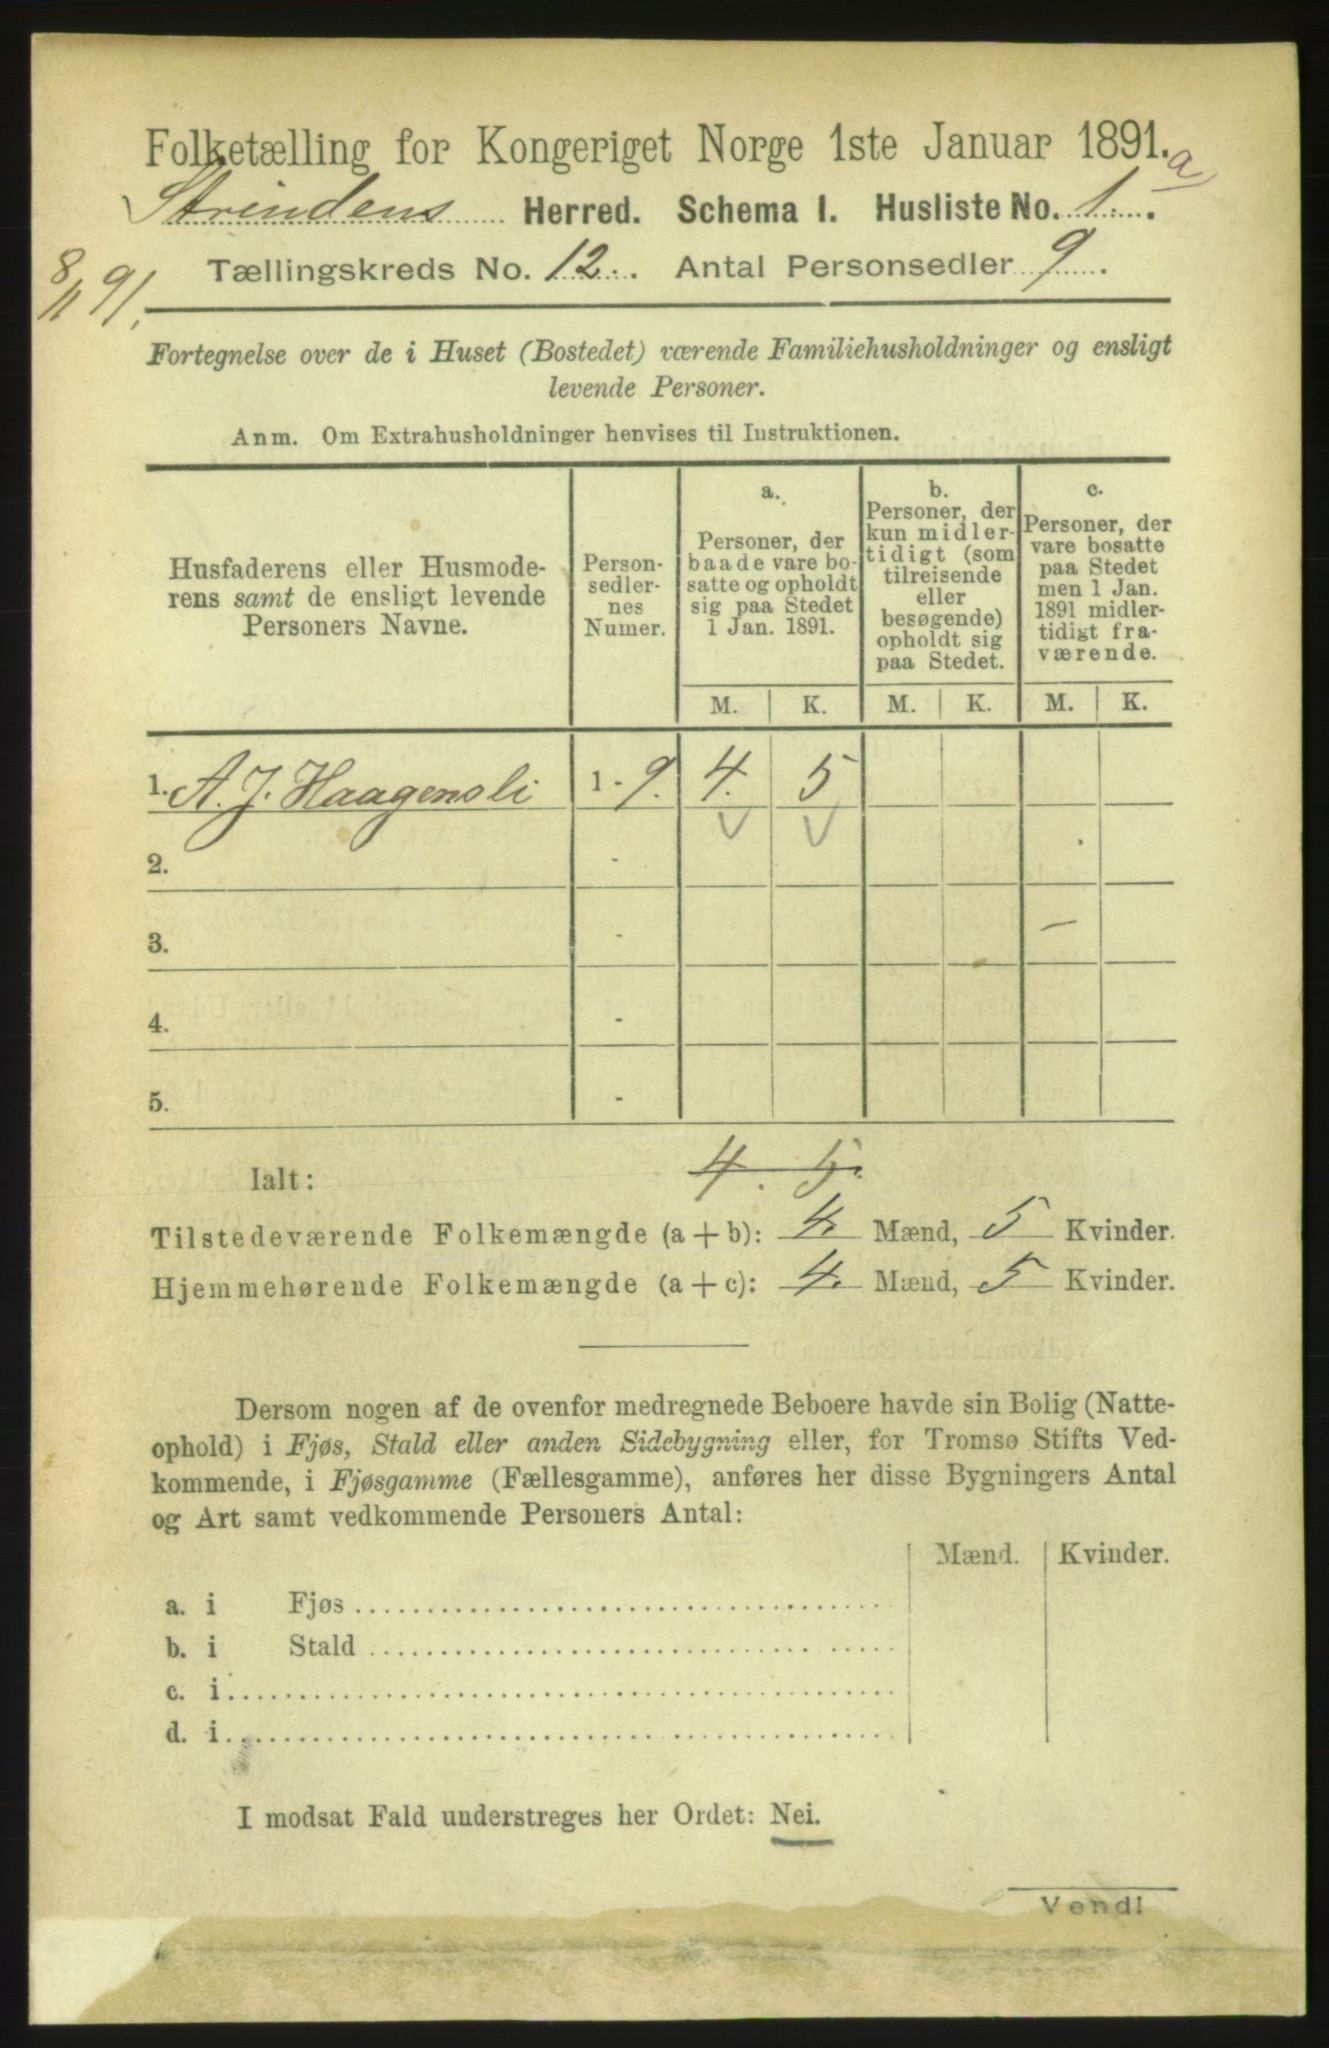 Folketælling for Kongeriget Norge 1ste Januar 1891.
Strindens Herred. Schema I. Husliste No. 1. a
8/1 91.
Tællingskreds No. 12. Antal Personsedler 9.
Fortegnelse over de i Huset (Bostedet) værende Familiehusholdninger og ensligt
levende Personer.
Anm. Om Extrahusholdninger henvises til Instruktionen.
Husfaderens eller Husmode-
rens samt de ensligt levende
Personers Navne.
Person-
sedler-
nes
Numer.
a.
Personer, der
baade vare bo-
satte og opholdt
sig paa Stedet
1 Jan. 1891.
b.
Personer, der
kun midler-
tidigt (som
tilreisende
eller
besøgende)
opholdt sig
paa Stedet.
c.
Personer, der
vare bosatte
paa Stedet
men 1 Jan.
1891 midler-
tidigt fra-
værende.
M. K. M. K. M. K.
1. A. J. Haagensli 1 - 9. 4. 5
2. -
3. - -
4. -
5. -
Ialt: 4. 5.
Tilstedeværende Folkemængde (a + b): 4. Mænd, 5 Kvinder.
Hjemmehørende Folkemængde (a + c): 4. Mænd, 5 Kvinder.
Dersom nogen af de ovenfor medregnede Beboere havde sin Bolig (Natte-
ophold) i Fjøs, Stald eller anden Sidebygning eller, for Tromsø Stifts Ved-
kommende, i Fjøsgamme (Fællesgamme), anføres her disse Bygningers Antal
og Art samt vedkommende Personers Antal:
Mænd. Kvinder.
a. i Fjøs
b. i Stald
c. i
d. i
I modsat Fald understreges her Ordet: Nei.
Vend!